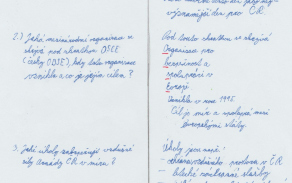 významnější den pro ČR
2.) Jaká mezinárodní organizace se
skrývá pod zkratkou OSCE
(česky OBSE), kdy tato organizace
vznikla a co je jejím cílem?
Pod touto zkratkou se skrývá
Organizace pro
bezpečnost a
spolupráci v
Evropě
Vznikla v roce 1995
Cíl je mír a spolupráce mezi
Evropskými státy
3. Jaké úkoly zabezpečují vzdušné
síly armády ČR v míru?
Úkoly jsou např.
- obrana vzdušného prostoru v ČR
- letecké